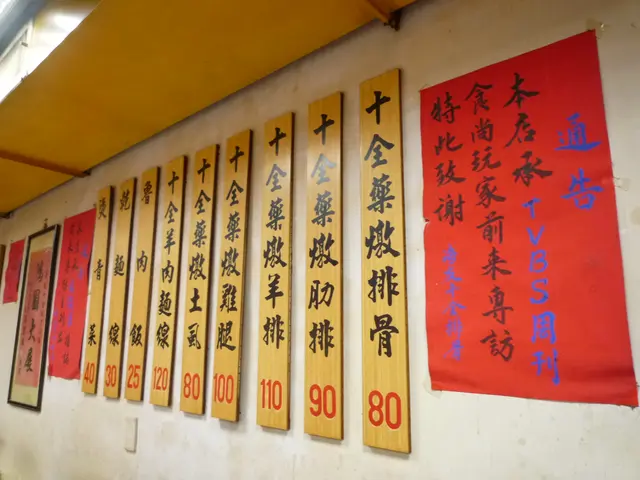 通告
本店承TVBS周刊
食尚玩家前來專訪
特此致謝
海友十全排骨
十全藥燉排骨 80
十全藥燉肋排 90
十全藥燉羊排 110
十全藥燉雞腿 100
十全藥燉土虱 80
十全羊肉麵線 120
魯肉飯 25
乾麵線 30
燙青菜 40
鴻圖大展